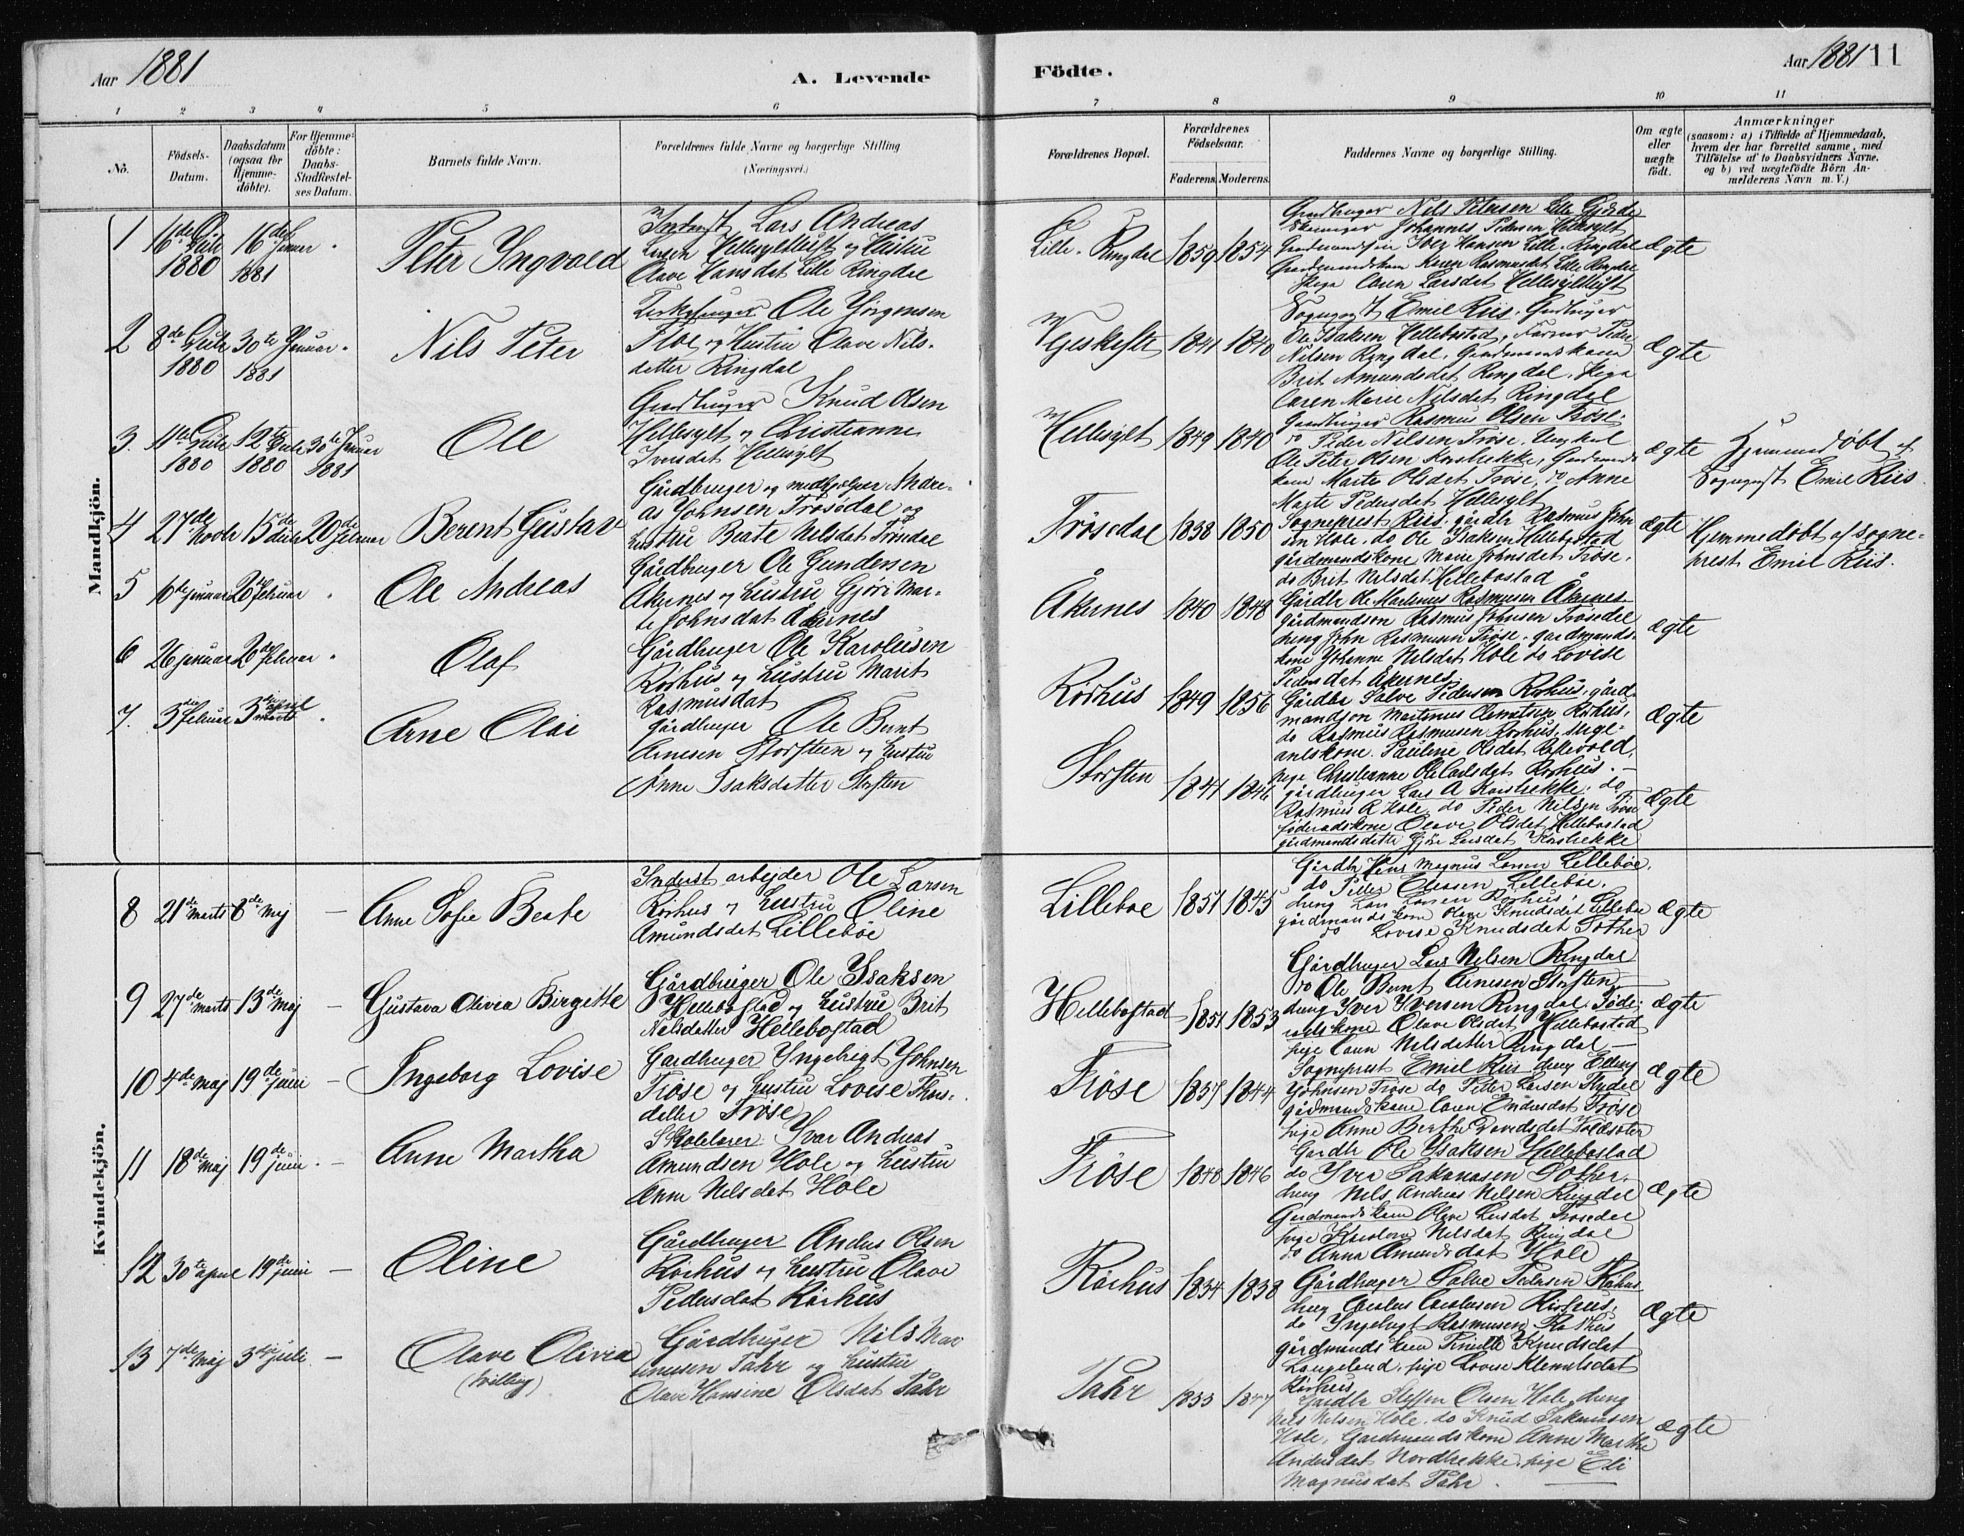 Aar 1881
A. Levende
Födte.
Aar 1881 11
1 2 3 4 5 6 7 8 9 10 11
No.
Födsels-
Datum.
Daabsdatum
(ogsaa for
Hjemme-
döbte).
For Hjemme-
döbte:
Daabs-
Stadfæstel-
ses Datum.
Barnets fulde Navn.
Forældrenes fulde Navne og borgerlige Stilling
(Næringsvei.)
Forældrenes Bopæl.
Forældrenes
Födselsaar.
Faderens. Moderens.
Faddernes Navne og borgerlige Stilling.
Om ægte
eller
uægte
födt.
Anmærkninger
(saasom: a) i Tilfælde af Hjemmedaab,
hvem der har forrettet samme, med
Tilföielse af to Daabsvidners Navne,
og b) ved uægtefödte Börn An-
melderens Navn m. V.)
Mandkjön.
1
1880
1881
Peter Ingvold
Lars Andreas
Larsen Hellesyltkift og Hustru
Olave Hansdat Lille Ringdal
Lille Ringdal 1859 1854
Gardbruger Nils Petersen Lille Gjørde
Johannes Pedersen Hellesylt
Gaardmandskone Karen Rasmusdat Lille Ringdal
Pige Caren Larsdat
ægte
2 8de
1880
30te Januar
1881
Nils Peter
Ole Jörgensen
og Hustru Olave Nils-
detter Ringdal
1841 1840
Sogneprest Emil Riis, Gardbruger
Ole Isaksen Hellebostad, Peder
Nilsen Ringdal, Gardmandskone
Brit Amundsdat Ringdal, Pige
Caren Marie Nilsdat Ringdal
ægte
3. 11te
1880
12te
1880
30te Januar
1881
Ole
Gardbruger Knud Olsen
Hellesylt og Christianne
Iversdat Hellesylt
Hellesylt 1849 1840
Gardbruger Rasmus Olsen Tröse,
do Peder Nilsen Tröse, Ungkarl
Ole Peter Olsen Korsbrekke, Gardmands
kone Marte Olsdat Tröse, do Anne
Marte Pedersdat Hellesylt
ægte
Hjemmedøbt af
Sognepr. Emil Riis.
4 27de Novbr 15de Decbr 20de Februar
Berent Gustav
Gårdbruger og medhjelper Andre-
as Johnsen Trösedal og
hustru Beate Nilsdat Trösdal
Trösedal 1838 1850
Sogneprest Riis, gårdbr Rasmus John
sen Hole, do Ole Isaksen Hellebostad
gårdmandskone Marie Johnsdat Tröse,
do Brit Nilsdat Hellebostad
ægte
Hjemmedöbt af Sogne-
prest Emil Riis.
5 16de januar 20de februar
Ole Andreas
Gårdbruger Ole Gundersen
Åkernes og hustru Gjöri Mar-
te Johnsdat Åkernes
Åkernes 1840 1848
Gårdbr Ole Martinus Rasmusen Åkernes
gårdmandsön Rasmus Johnsen Trösdal
dreng John Rasmusen Tröse, gardmands-
kone Johanne Nilsdat Hole do Lovise
Pedersdat Åkernes
ægte
6 26 januar 20de februar
Olaf
Gårdbruger Ole Karolusen
Rörhus og hustru Marit
Rasmusdat
Rörhus 1849 1856
Gårdbr Salve Pedersen Rörhus, gård-
mandsön Martinus Rörhus,
do Rasmus Rasmusen Rörhus,
Pauline Olsdat
pige Christianne Rörhus.
ægte
7. 3die februar 3die april
marts
Arne Olai
Gårdbruger Ole Bernt
Arnesen Storsten og hustru
Anne Isaksdatter Storsten
Storsten 1841 1846
gårdbruger Lars A Korsbrekke, do
Rasmus R Hole, do Peder Nilsen Tröse
föderaadskone Olave Olsdat Hellebostad
gårdmandsdatter Gjöri Larsdat Korsbrekke
ægte
Kvindekjön.
8 21de marts 8de Mai
Anne Sofie Beate
Inderst arbejder Ole Larsen
Rörhus og hustru Oline
Amundsdat Lillebøe
Lilleboe 1851 1845
Gårdbr Magnus Larsen Lillebøe,
do Peder Eliasen Lillebøe,
dreng Lars Larsen Rörhus,
gårdmandskone Olave Knudsdat Lillebøe
do Lovise Knudsdat
ægte
9 27de marts 13de Maj
Gustava Olivia Birgitte
Gårdbruger Ole Isaksen
Hellebostad og hustru Brit
Nilsdatter Hellebostad
Hellebostad 1851 1853
Gårdbruger Lars Nilsen Ringdal
do Ole Bernt Arnesen Storsten
dreng Iver Iversen Ringdal, Föde-
radskone Olave Olsdat Hellebostad
pige Caren Nilsdatter Ringdal
ægte
10 4de maj 19de juni
Ingeborg Lovise
Gardbruger Ingebrigt Johnsen
Tröse og hustru Lovise
detter Tröse
Tröse 1837 1844
Sogneprest Emil Riis, dreng Elling
Johnsen Tröse do Peter Larsen Flydal
gårdmandskone Caren Endresdat Tröse
pige Anne Berthe Davidsdat
ægte
11 18de maj 19de juni
Anne Martha
Skolelærer Ivar Andreas
Amundsen Hole og hustru
Anne Nilsdat Hole
Tröse 1848 1846
Gardbr Ole Isaksen Hellebostad
do Iver
dreng Nils Andreas Nilsen Ringdal
Gardmandskone Olave Larsdat Trösedal
pige Nilsdat Ringdal
do Anna Amundsdat Hole
ægte
12 30te april 19de juni
Oline
Gårdbruger Anders Olsen
Rörhus og hustru Olave
Pedersdat Rörhus
Rörhus 1834 1838
Gårdbruger Salve Pedersen Rörhus
dreng Rörhus,
do Ingebrigt Rasmusen Rörhus
gårdmandskone Knudsdat
Langeland, pige Lovise Klemetsdat
Rörhus
ægte
13 7de Maj 3die juli
Olave Olivia
(tvilling)
Gårdbruger Nils Mar
tinusen Tahr og hustru
Olave Hansine Olsdat Tahr
Tahr 1853 1847
Gardbr Steffen Olsen Hole, dreng
Nils Nilsen Hole, do Knud
Hole, Gardmandskone Anne Marthe
Andersdat Nordbrekke, pige Eli
Magnusdat Tahr.
ægte